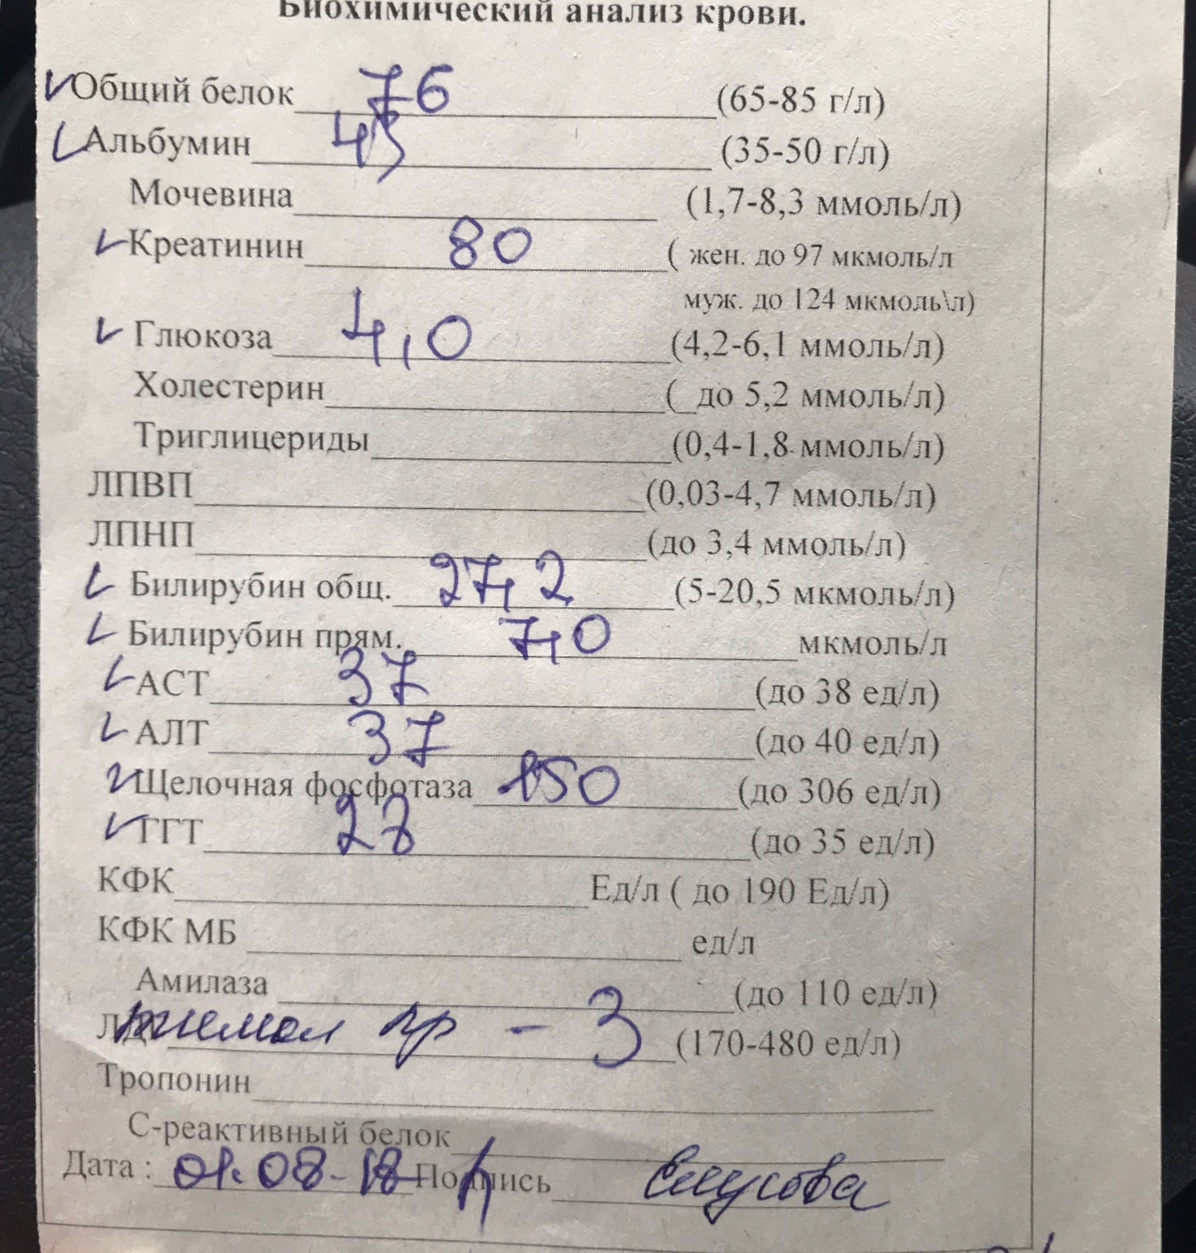 Биохимический анализ крови.
Общий белок 76 (65-85 г/л)
Альбумин 45 (35-50 г/л)
Мочевина (1,7-8,3 ммоль/л)
Креатинин 80 ( жен. до 97 мкмоль/л
муж. до 124 мкмоль\л)
Глюкоза 4,0 (4,2-6,1 ммоль/л)
Холестерин ( до 5,2 ммоль/л)
Триглицериды (0,4-1,8 ммоль/л)
ЛПВП (0,03-4,7 ммоль/л)
ЛПНП (до 3,4 ммоль/л)
Билирубин общ. 27,2 (5-20,5 мкмоль/л)
Билирубин прям. 7,0 мкмоль/л
АСТ 37 (до 38 ед/л)
АЛТ 37 (до 40 ед/л)
Щелочная фосфотаза 150 (до 306 ед/л)
ГГТ 28 (до 35 ед/л)
КФК Ед/л ( до 190 Ед/л)
КФК МБ ед/л
Амилаза (до 110 ед/л)
тимол пр - 3 (170-480 ед/л)
Тропонин
С-реактивный белок
Дата : 01.08-18 Подпись